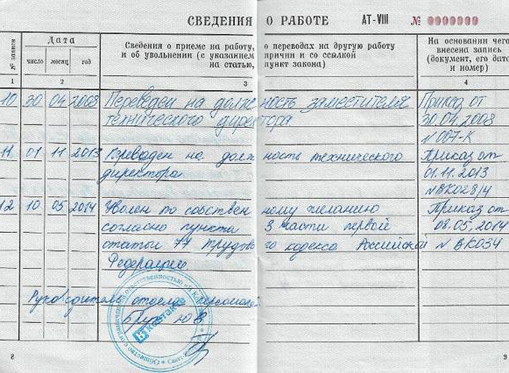 СВЕДЕНИЯ О РАБОТЕ АТ-VIII № 0000000
№ записи
Дата
Сведения о приеме на работу, о переводах на другую работу
и об увольнении (с указанием причин и со ссылкой
на статью, пункт закона)
На основании чего
внесена запись
(документ, его дата
и номер)
число месяц год
1 2 3 4
10 30 04 2008 Переведен на должность заместителя
технического директора
Приказ от
30.04.2008
N007-К
11 01 11 2013 на должность технического
директора
Приказ от
01.11.2013
12 10 05 2014 Уволен по собственному желанию
согласно пункта 3 части первой
статьи 77 Трудового кодекса Российской
Федерации
Приказ от
08.05.2014
N ВК034
Руководитель отдела персонала
ВКонтакте
8 9